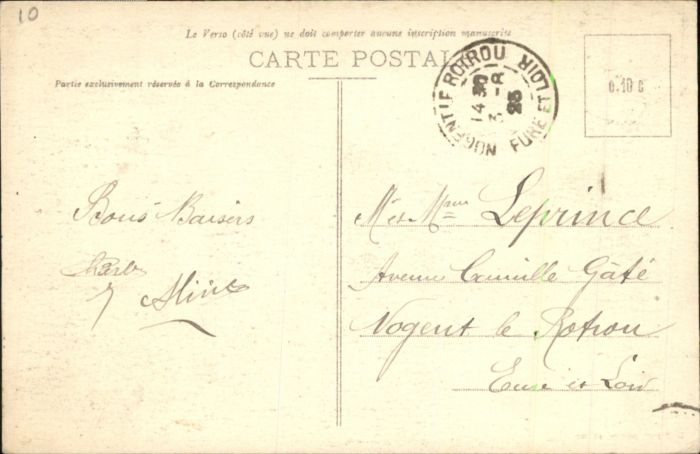 10
Le Verso (côté vue) ne doit comporter aucune inscription manuscrite
CARTE POSTAL
Partie exclusivement réservée à la Correspondance
NOGENT LE ROTROU EURE ET LOIR
14 30
3 -8
23
0.10 c
Bons Baisers
Charles
Aline
Mr et Mme Leprince
Avenue Camille Gâté
Nogent le Rotrou
Eure et Loir